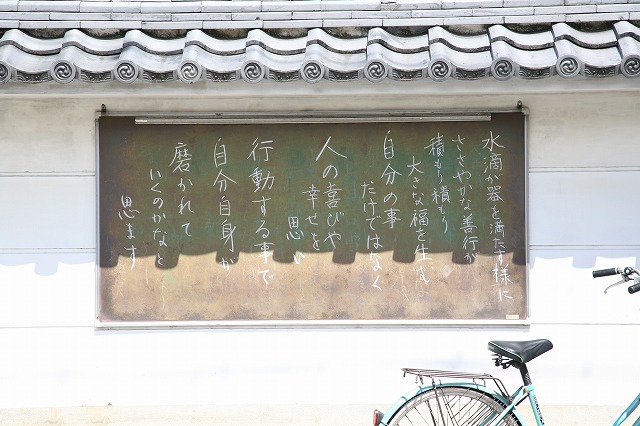 水滴が器を満たす様に
ささやかな善行が
積もり積もり
大きな福を生成
自分の事
だけではなく
人の喜びや
幸せを
思い
行動する事で
自分自身が
磨かれて
いくのかなと
思ます